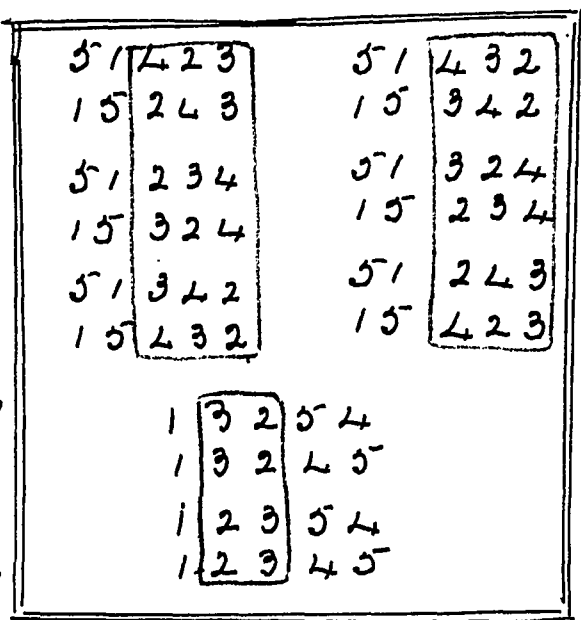 5 1 4 2 3
1 5 2 4 3
5 1 2 3 4
1 5 3 2 4
5 1 3 4 2
1 5 4 3 2
5 1 4 3 2
1 5 3 4 2
5 1 3 2 4
1 5 2 3 4
5 1 2 4 3
1 5 4 2 3
1 3 2 5 4
1 3 2 4 5
1 2 3 5 4
1 2 3 4 5